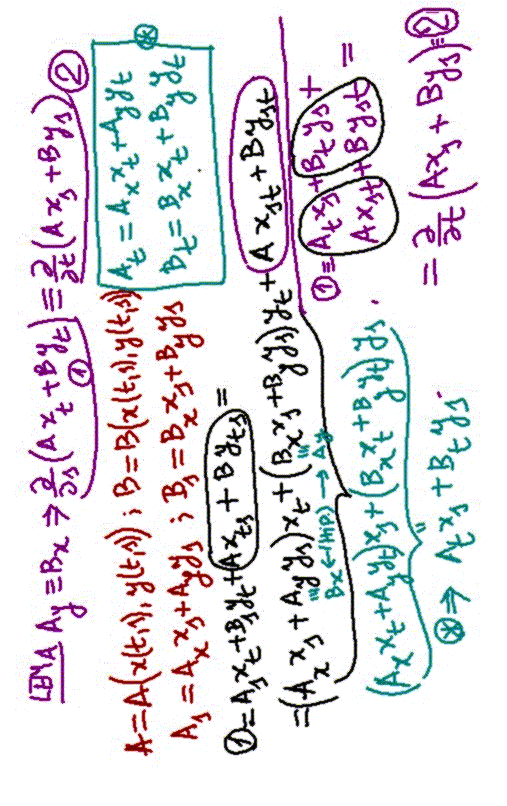 LEMA A_y = B_x ⇒ ∂/∂s (A x_t + B y_t) ① = ∂/∂t (A x_s + B y_s) ②
A = A(x(t,s), y(t,s)) ; B = B(x(t,s), y(t,s))
A_s = A_x x_s + A_y y_s ; B_s = B_x x_s + B_y y_s
A_t = A_x x_t + A_y y_t ⊛
B_t = B_x x_t + B_y y_t
① = A_s x_t + B_s y_t + A x_ts + B y_ts =
= (A_x x_s + A_y y_s) x_t + (B_x x_s + B_y y_s) y_t + A x_st + B y_st
B_x ← (Hip) → A_y
(A_x x_t + A_y y_t) x_s + (B_x x_t + B_y y_t) y_s
⊛ ⇒ A_t x_s + B_t y_s
① = A_t x_s + B_t y_s +
A x_st + B y_st =
= ∂/∂t (A x_s + B y_s) = ②